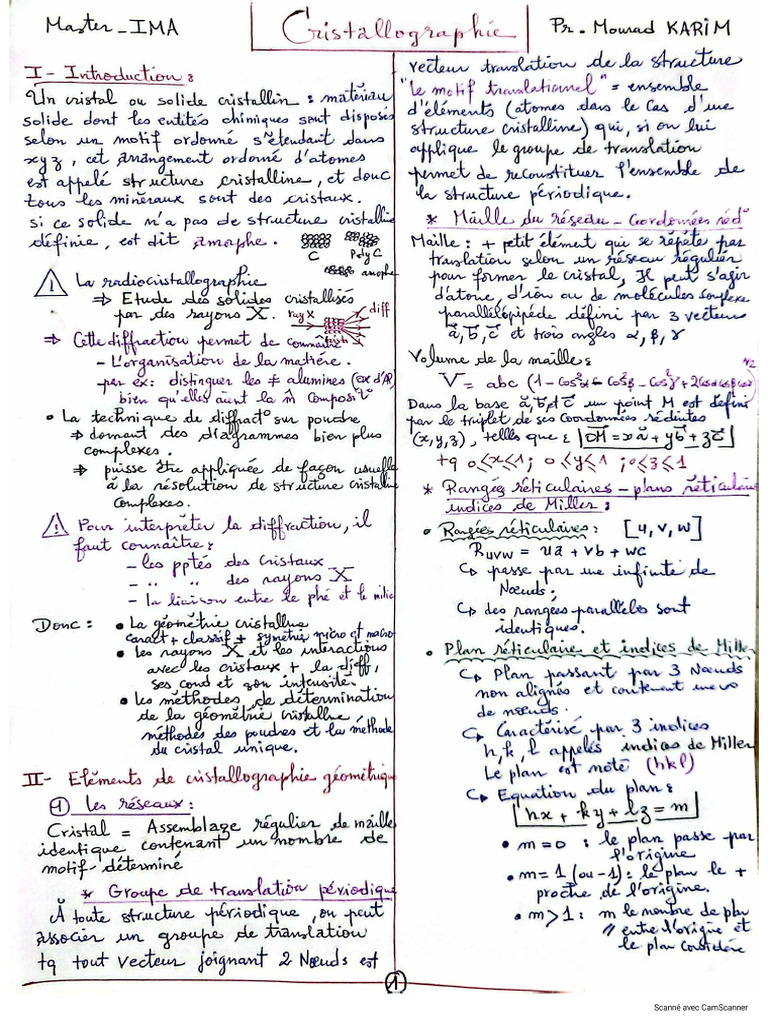 Master_IMA
Cristallographie
Pr. Mourad KARIM
I- Introduction :
Un cristal ou solide cristallin : matériau
solide dont les entités chimiques sont disposés
selon un motif ordonné s'étendant dans
xyz, cet arrangement ordonné d'atomes
est appelé structure cristalline, et donc
tous les minéraux sont des cristaux.
si ce solide n'a pas de structure cristalline
définie, est dit amorphe.
C PolyC
amorphe
La radiocristallographie
⇒ Etude des solides cristallisés
par des rayons X.
ray X
diff
⇒ Cette diffraction permet de connaître
- L'organisation de la matière.
- par ex: distinguer les ≠ alumines (ox d'Al)
bien qu'elles aient la m̂ composit°
• La technique de diffract° sur poudre
⇒ donnent des diagrammes bien plus
complexes.
⇒ puisse être appliquée de façon usuelle
à la résolution de structure cristalline
complexes.
Pour interpréter la diffraction, il
faut connaître :
- les pptés des cristaux
- " " des rayons X
- la liaison entre le phé et le milie
Donc : • La géométrie cristalline
caract + classif + symétrie micro et macro
• les rayons X et les interactions
avec les cristaux + la diff,
ses cond et son intensité.
• les méthodes de détermination
de la géométrie cristalline
méthodes des poudres et la méthode
du cristal unique.
II- Eléments de cristallographie géométrique
① les réseaux :
Cristal = Assemblage régulier de maille
identique contenant un nombre de
motif déterminé
* Groupe de translation périodique
À toute structure périodique, on peut
associer un groupe de translation
tq tout vecteur joignant 2 Nœuds est
vecteur translation de la structure
"le motif translationnel" = ensemble
d'éléments (atomes dans le cas d'une
structure cristalline) qui, si on lui
applique le groupe de translation
permet de reconstituer l'ensemble de
la structure périodique.
* Maille du réseau - Coordonées réd
Maille : + petit élément qui se répéte par
translation selon un réseau régulier
pour former le cristal, Il peut s'agir
d'atone, d'ion ou de molécules complexe
parallélépipède défini par 3 vecteurs
a⃗, b⃗, c⃗ et trois angles α, β, γ
Volume de la maille :
V = abc (1 - cos²α - cos²β - cos²γ + 2cosα cosβ cosγ)^1/2
Dans la base a⃗, b⃗, c⃗ un point M est défini
par le triplet de ses Coordonnées réduites
(x, y, z), telles que : OM⃗ = x a⃗ + y b⃗ + z c⃗
tq 0≤x≤1 ; 0≤y≤1 ; 0≤z≤1
* Rangées réticulaires - plans réticulaire
indices de Miller :
• Rangées réticulaires : [u, v, w]
Ruvw = ua⃗ + vb + wc
↳ passe par une infinité de
Nœuds;
↳ des rangées parallèles sont
identiques.
• Plan réticulaire et indices de Mille
↳ Plan passant par 3 Nœuds
non alignés et contenant une ∞
de nœuds.
↳ Caractérisé par 3 indices
h, k, l appelés indices de Miller
Le plan est noté (hkl)
↳ Equation du plan :
hx + ky + lz = m
• m = 0 : le plan passe par
l'origine
• m = 1 (ou -1) : le plan le +
proche de l'origine.
• m > 1 : m le nombre de plan
// entre l'origine et
le plan considéré
1
Scanné avec CamScanner